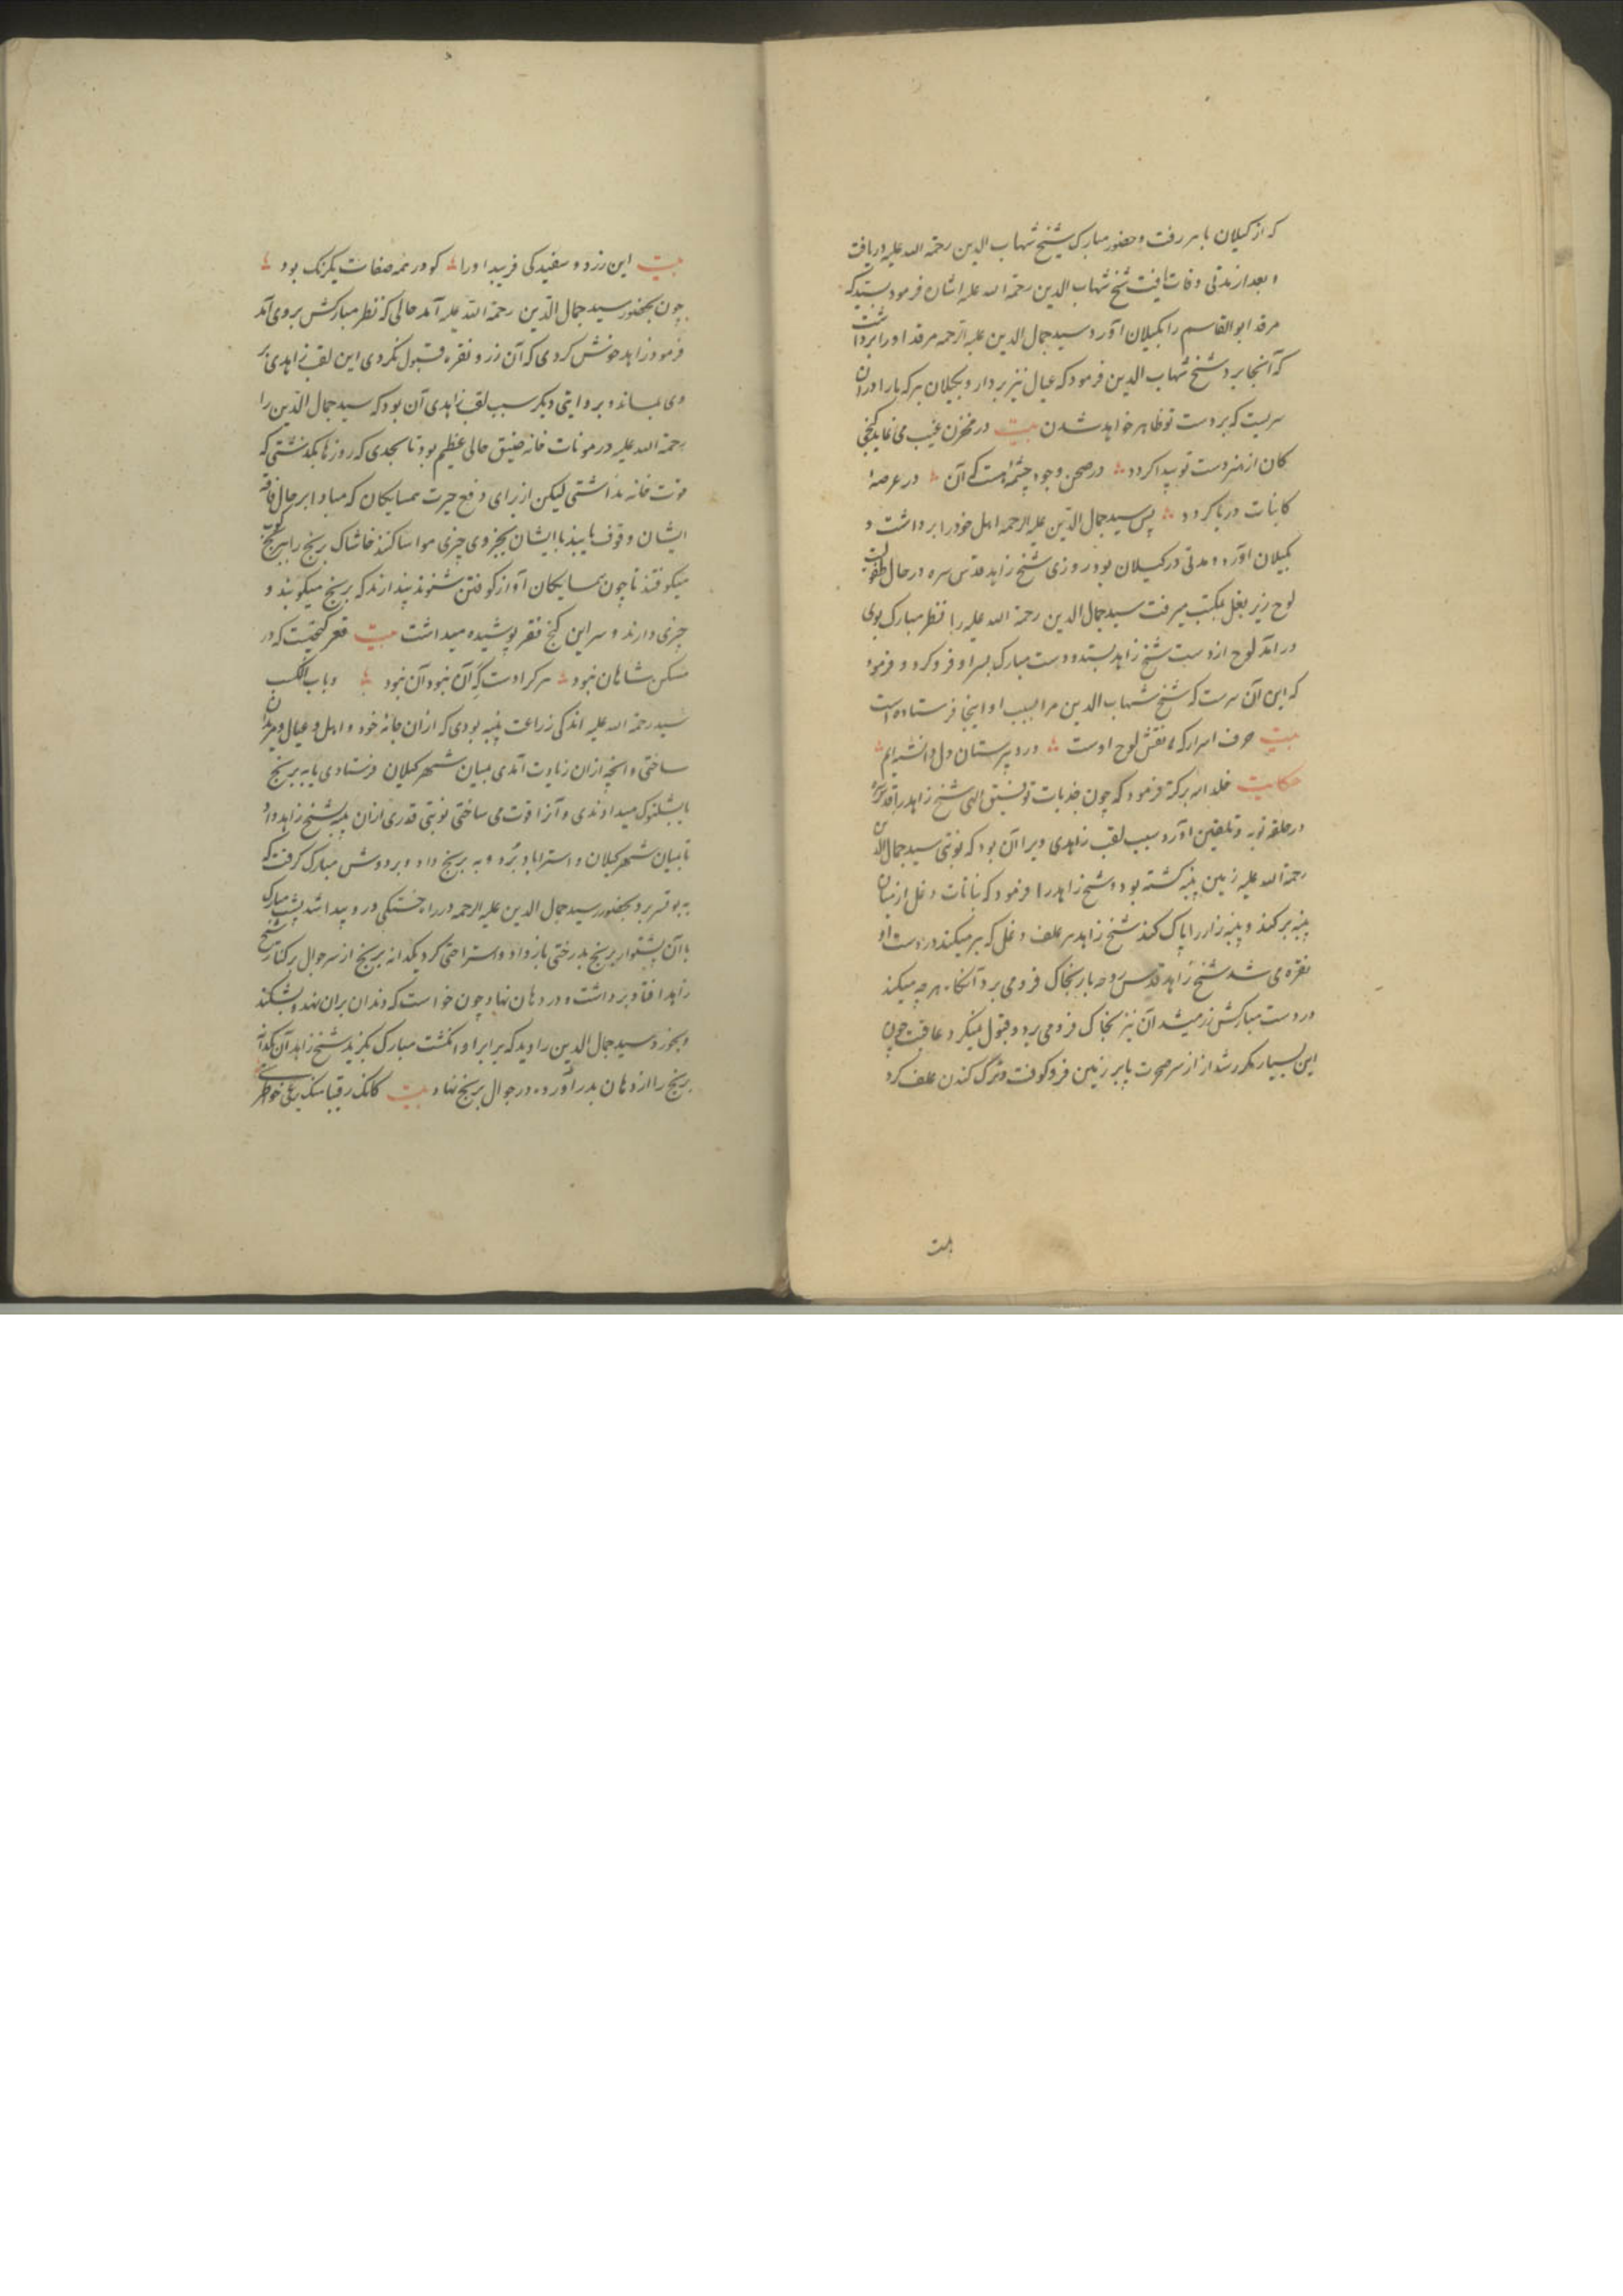 که از کیلان باهر رفت و حضور مبارک شیخ شهاب الدین رحمة الله علیه دریافت
و بعد از مدتی وفات یافت شیخ شهاب الدین رحمة الله علیه ایشان فرمود سید که
مرقد ابو القاسم را بکیلان آورد سید جمال الدین علیه الرحمه مرقد او را برداشت
که آنجا برد شیخ شهاب الدین فرمود که عیال نیز بردار و بکیلان بر که مارا در آن
سریست که بر دست تو ظاهر خواهد شدن بیت در مخزن غیب می نماید گنجی
کان از هنر دست تو پیدا کردد در صحن وجود چشمه هست که آن در عرصهٔ
کاینات دریا کردد پس سید جمال الدین علیه الرحمه اهل خود را برداشت و
بکیلان آورد و مدتی در کیلان بود روزی شیخ زاهد قدس سره در حال طفولیت
لوح زیر بغل بمکتب میرفت سید جمال الدین رحمة الله علیه را نظر مبارک بوی
در آمد لوح از دست شیخ زاهد بستد و دست مبارک بسر او فرو کرد و فرمود
که این آن سرست که شیخ شهاب الدین مرا بسبب او اینجا فرستاده است
بیت حرف اسرار که نقش لوح اوست در دبیرستان دل دانسته ایم
حکایت خلد الله برکته فرمود که چون جذبات توفیق الهی شیخ زاهد را قدس سره
در حلقه توبه و تلقین آورد سبب لقب زاهدی ویرا آن بود که نوبتی سید جمال الدین
رحمة الله علیه زمین پنبه کشته بود و شیخ زاهد را فرمود که نباتات دغل از میان
پنبه بر کند و پنبه زار را پاک کند شیخ زاهد هر علف دغل که بر میکند در دست او
نقره می شد شیخ زاهد قدس روحه باز بخاک فرو می برد آنکاه هر چه میکند
در دست مبارکش زر میشد آن نیز بخاک فرو می برد و قبول نمیکرد عاقبت چون
این بسیار مکرر شد از سر ضجرت پا بر زمین فرو کوفت و ترک کندن علف کرد
بیت
بیت این زرد و سفید کی فریبد او را کو در همه صفات یکرنک بود
چون بحضور سید جمال الدین رحمة الله علیه آمد حالی که نظر مبارکش بر وی آمد
فرمود زاهد خوش کردی که آن زر و نقره قبول نکردی این لقب زاهدی بر
وی بماند و بروایتی دیکر سبب لقب زاهدی آن بود که سید جمال الدین را
رحمة الله علیه در مونات خانه ضیق حالی عظیم بود تا بحدی که روزها بگذشتی که
قوت خانه نداشتی لیکن از برای دفع حیرت همسایکان که مبادا بر حال فاقه
ایشان وقوف یابند با ایشان بجزوی چیزی مواسا کنند خاشاک برنج را ببرنج کوب
میکوفتند تا چون همسایکان آواز کوفتن شنوند پندارند که برنج میکوبند و
چیزی دارند و سر این کنج فقر پوشیده میداشت بیت فقر گنجیست که در
مسکن شاهان نبود هر کرا دست که آن نبود آن نبود و باب الکسب
سید رحمة الله علیه اندکی زراعت پنبه بودی که از آن جامه خود و اهل و عیال و مریدان
ساختی و آنچه از آن زیادت آمدی بمیان شهر کیلان فرستادی یا به برنج
یا بشلتوک میدادندی و آنرا قوت می ساختی نوبتی قدری از آن پنبه شیخ زاهد داد
تا بمیان شهر کیلان و استراباد برد و به برنج داد و بر دوش مبارک کرفت که
برد بحضور سید جمال الدین علیه الرحمه در راه خستکی در و پیدا شد پشت مبارک
با آن پشتوار برنج بدرختی باز داد و استراحتی کرد یکدانه برنج از سر جوال بر کنار شیخ
زاهد افتاد برداشت و در دهان نهاد چون خواست که دندان بر آن نهد و بشکند
و بخورد سید جمال الدین را دید که برابر او انگشت مبارک بگزید شیخ زاهد آن یکدانه
برنج را از دهان بدر آورد و در جوال برنج نهاد بیت